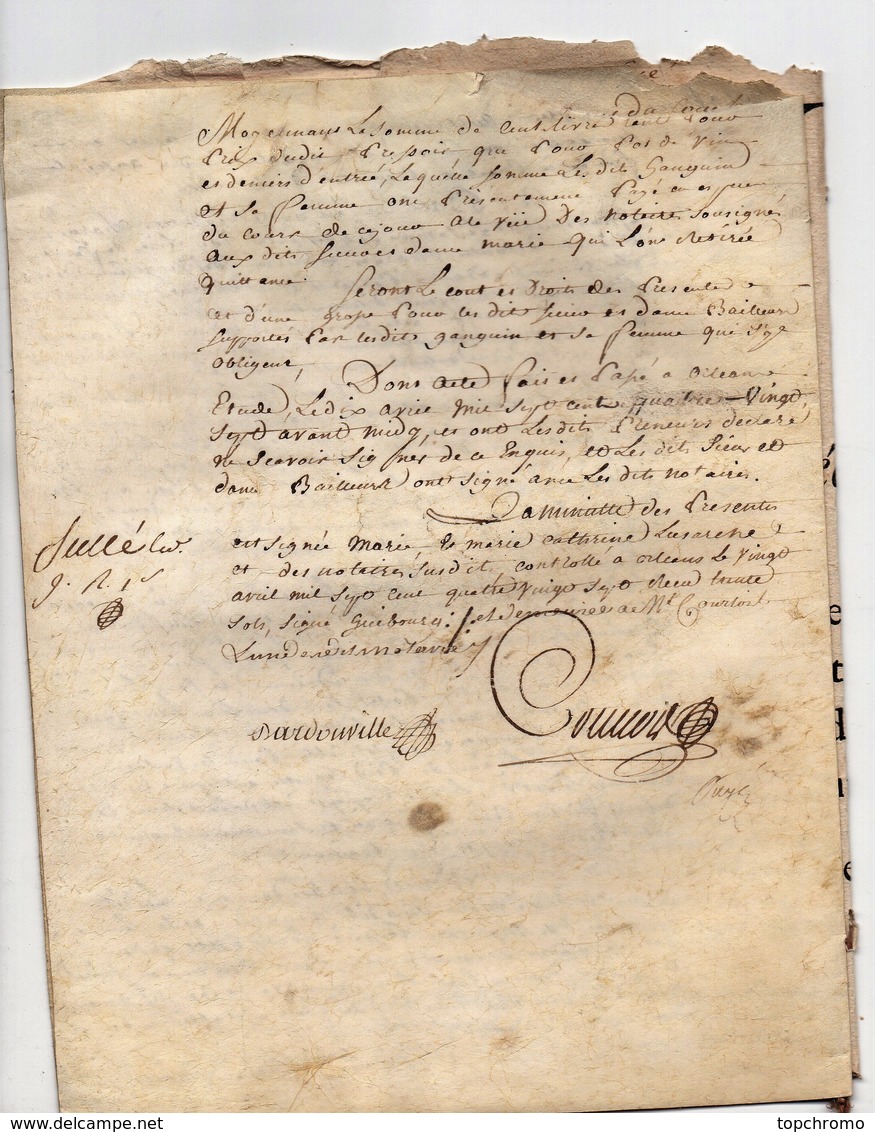 Moyennant La somme de Cent livre tant Pour
Prix dudit Pressoir que Pour Pot de Vin
et deniers d'entrée, Laquelle somme Les dits Ganguin
et sa femme ont Présentement Payé en espece
du cours de ce jour a la vüe Des notaires sousignés
aux dits sieur et dame marie qui L'ont Retirée
quittance.
Seront Le cout et Droits des Presentes
et d'une grosse Pour les dit sieur et dame Bailleurs
supportés Par lesdits ganguin et sa femme qui s'y
obligent,
Dont acte Fait et Passé a Orleans
Etude, Le dix avril Mil Sept cent quatre-Vingt
Sept avant midy, et ont Les dits Preneurs déclaré
ne scavoir signer de ce Enquis, et Les dits Sieur et
dame Bailleurs ont signé avec Les dits notaires.
La minutte des Presentes
est signée Marie, M marie cathrine Lusarche
et des notaires susdit, controllé a orleans Le Vingt
avril mil sept cent quatre vingt sept Recu trente
sols, signé Guibourg; et demeurée a Me Courtois
L'un desdits notaires
Scellé
Sardouville
Courtois
Payé
topchromo